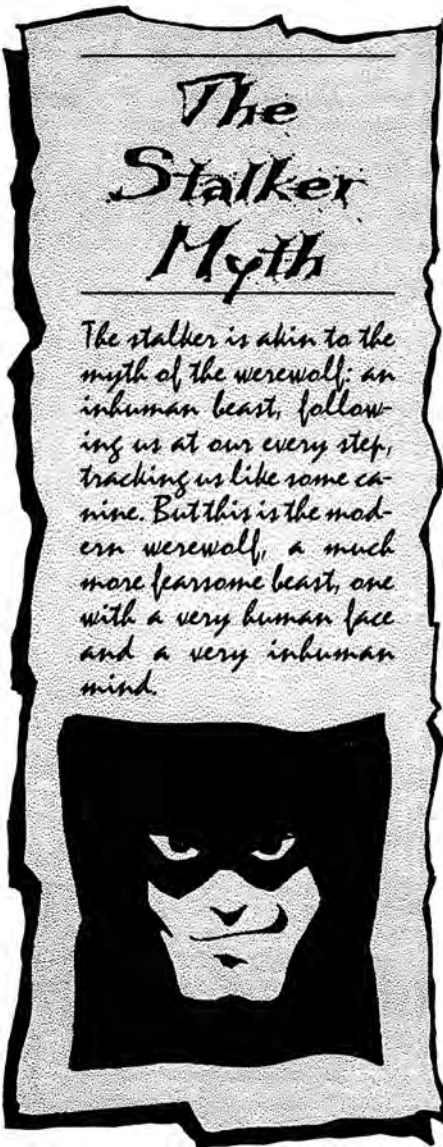 The
Stalker
Myth
The stalker is akin to the
myth of the werewolf: an
inhuman beast, follow-
ing us at our every step,
tracking us like some ca-
nine. But this is the mod-
ern werewolf, a much
more fearsome beast, one
with a very human face
and a very inhuman
mind.